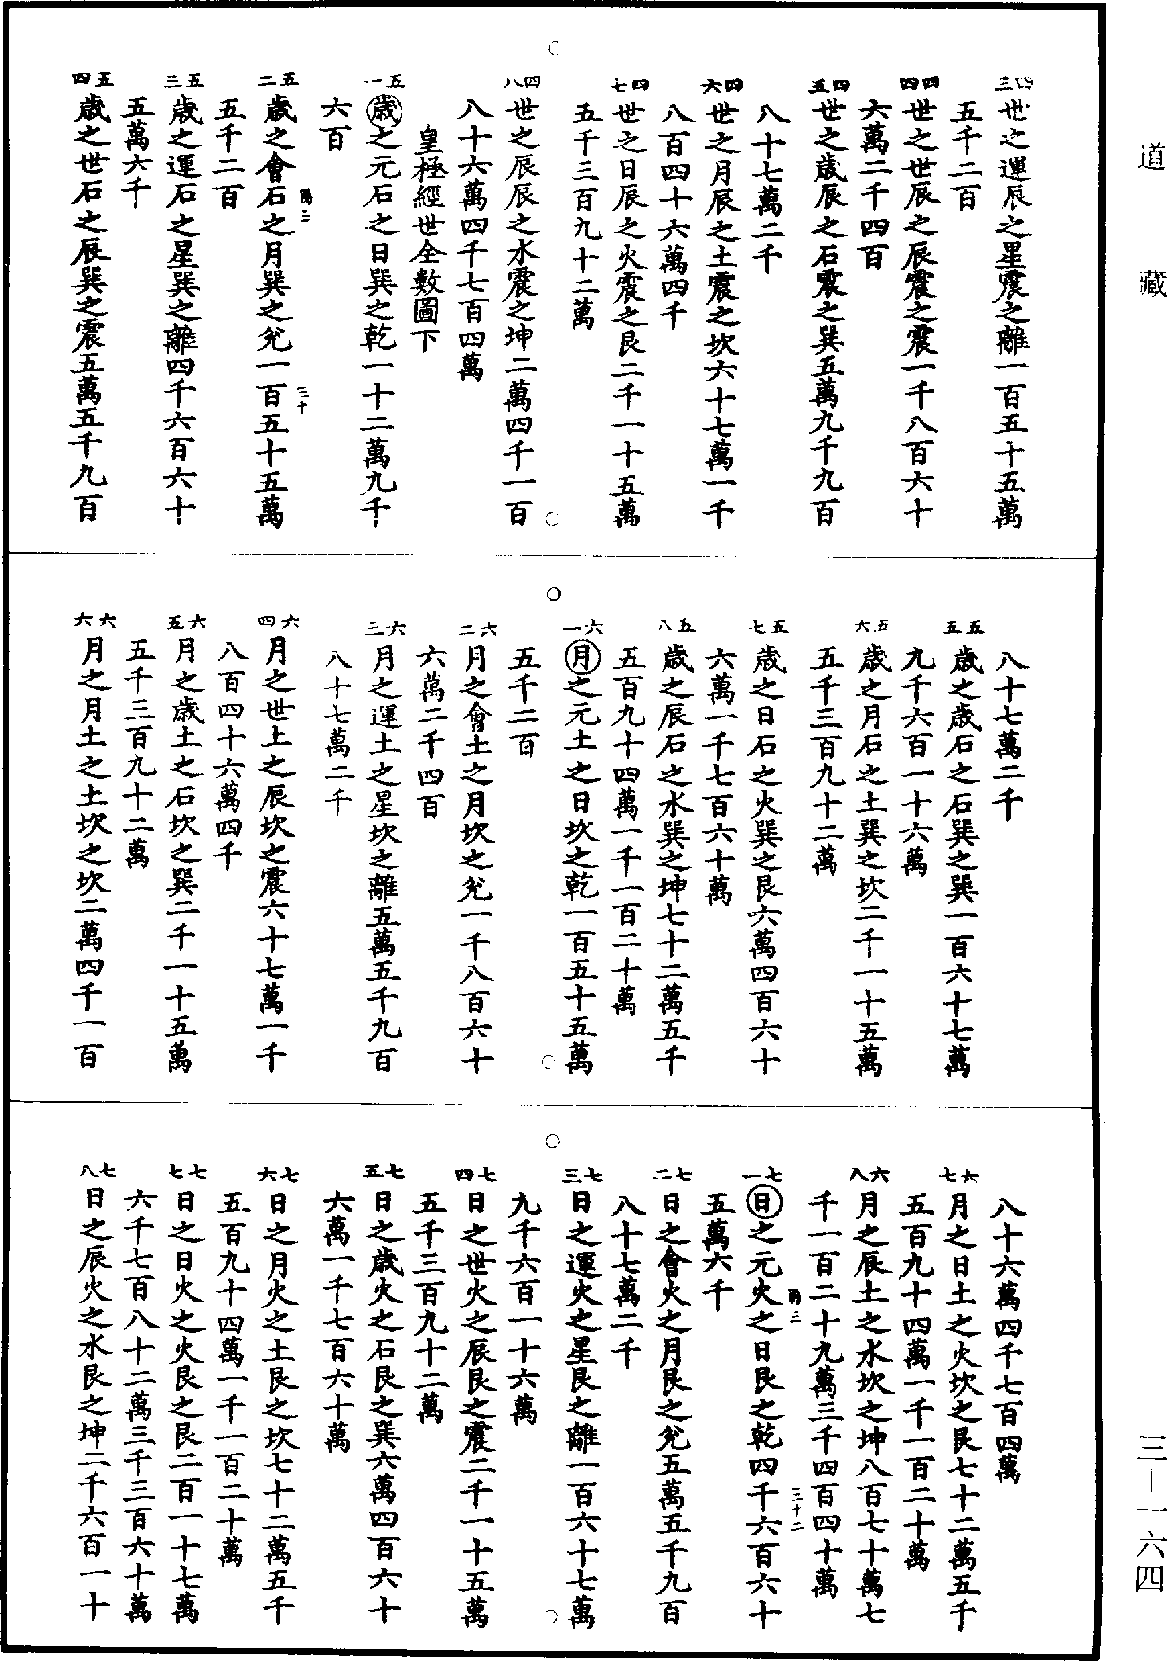 道藏
三－一六四
四三
世之運辰之星震之離一百五十五萬
五千二百
四四
世之世辰之辰震之震一千八百六十
六萬二千四百
四五
世之歲辰之石震之巽五萬九千九百
八十七萬二千
四六
世之月辰之土震之坎六十七萬一千
八百四十六萬四千
四七
世之日辰之火震之艮二千一十五萬
五千三百九十二萬
四八
世之辰辰之水震之坤二萬四千一百
八十六萬四千七百四萬
皇極經世全數圖下
五一
歲之元石之日巽之乾一十二萬九千
六百
五二
歲之會石之月巽之兊一百五十五萬
五千二百
五三
歲之運石之星巽之離四千六百六十
五萬六千
五四
歲之世石之辰巽之震五萬五千九百
八十七萬二千
五五
歲之歲石之石巽之巽一百六十七萬
九千六百一十六萬
五六
歲之月石之土巽之坎二千一十五萬
五千三百九十二萬
五七
歲之日石之火巽之艮六萬四百六十
六萬一千七百六十萬
五八
歲之辰石之水巽之坤七十二萬五千
五百九十四萬一千一百二十萬
六一
月之元土之日坎之乾一百五十五萬
五千二百
六二
月之會土之月坎之兊一千八百六十
六萬二千四百
六三
月之運土之星坎之離五萬五千九百
八十七萬二千
六四
月之世土之辰坎之震六十七萬一千
八百四十六萬四千
六五
月之歲土之石坎之巽二千一十五萬
五千三百九十二萬
六六
月之月土之土坎之坎二萬四千一百
八十六萬四千七百四萬
六七
月之日土之火坎之艮七十二萬五千
五百九十四萬一千一百二十萬
六八
月之辰土之水坎之坤八百七十萬七
千一百二十九萬三千四百四十萬
七一
日之元火之日艮之乾四千六百六十
五萬六千
三十二
七二
日之會火之月艮之兊五萬五千九百
八十七萬二千
七三
日之運火之星艮之離一百六十七萬
九千六百一十六萬
七四
日之世火之辰艮之震二千一十五萬
五千三百九十二萬
七五
日之歲火之石艮之巽六萬四百六十
六萬一千七百六十萬
七六
日之月火之土艮之坎七十二萬五千
五百九十四萬一千一百二十萬
七七
日之日火之火艮之艮二百一十七萬
六千七百八十二萬三千三百六十萬
七八
日之辰火之水艮之坤二千六百一十